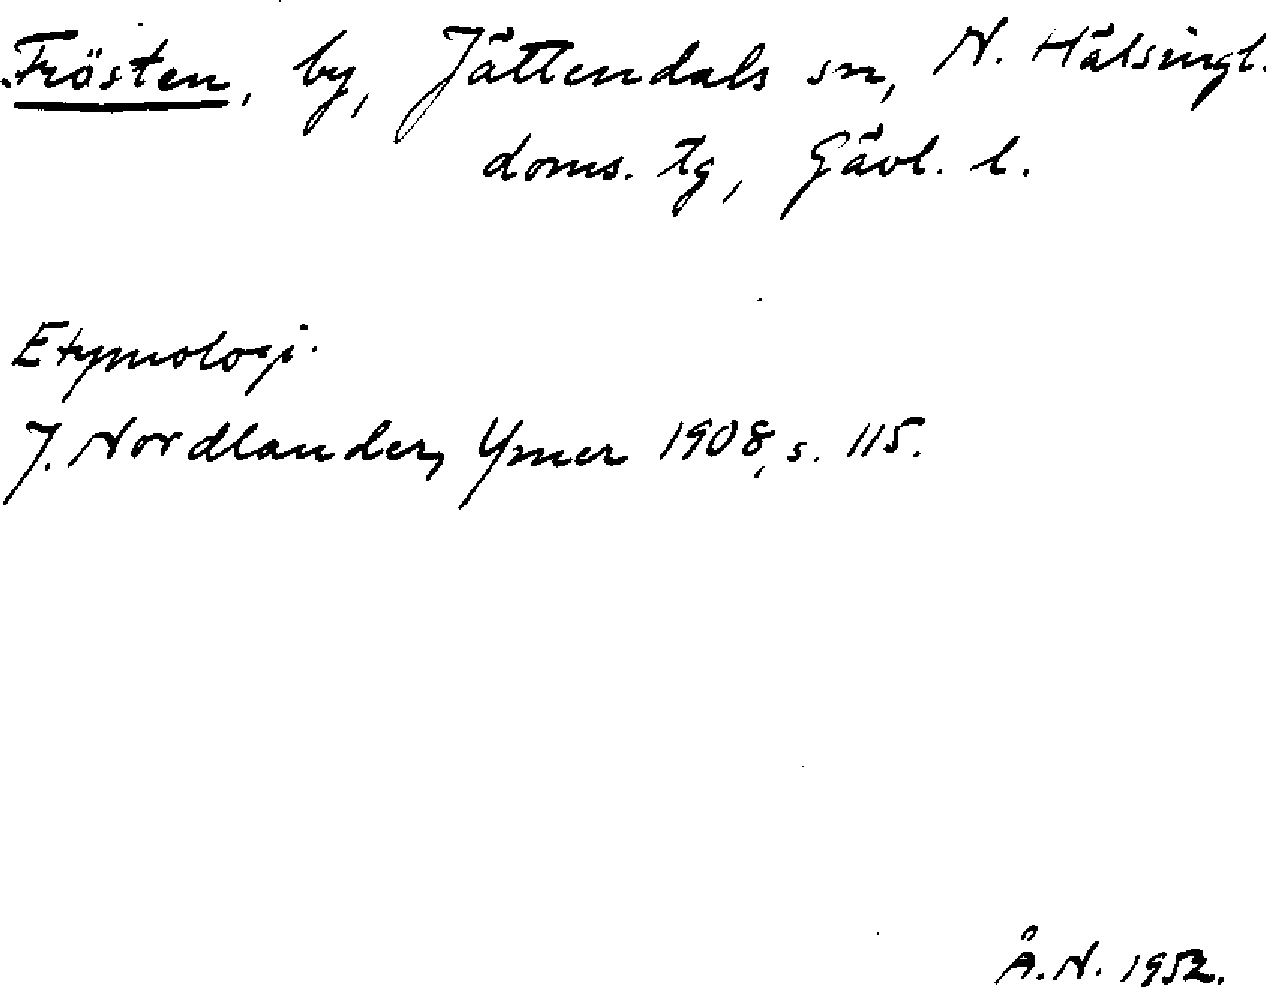 Frösten, by, Jättendals sn, N. Hälsingl.
doms. tg, Gävl. l.
Etymologi.
J. Nordlander, Ymer 1908, s. 115.
Å.N. 1952.